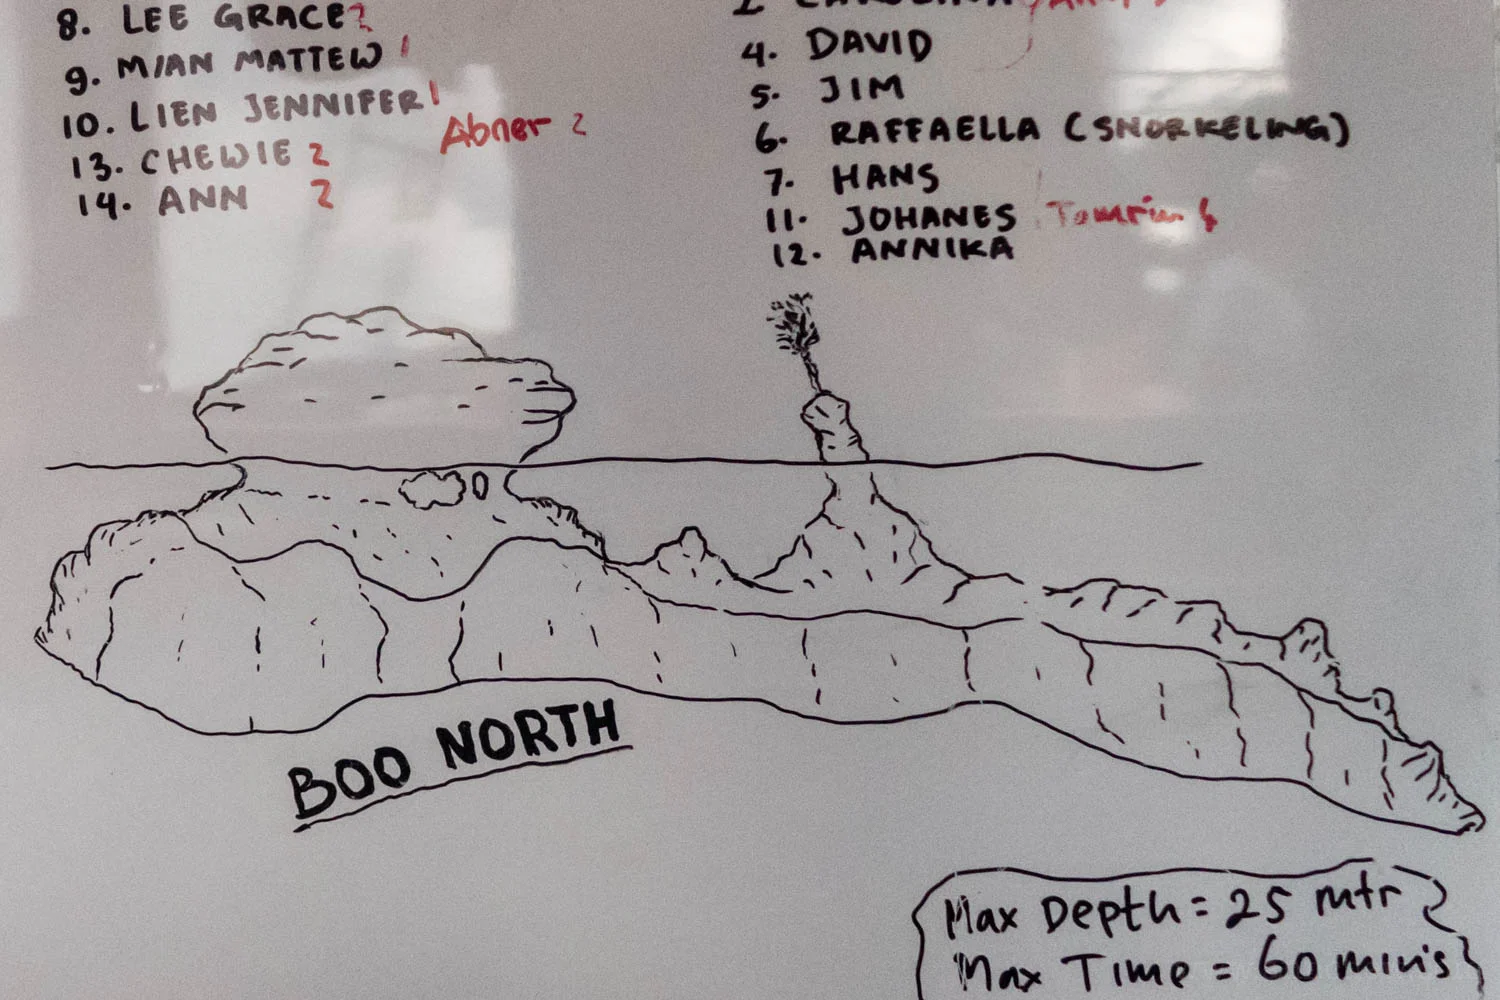 8. LEE GRACE 2
9. MIAN MATTEW 1
10. LIEN JENNIFER 1
Abner 2
13. CHEWIE 2
14. ANN 2
CAROLINA
4. DAVID
5. JIM
6. RAFFAELLA (SNORKELING)
7. HANS
11. JOHANES
12. ANNIKA
BOO NORTH
Max Depth = 25 mtr
Max Time = 60 min's